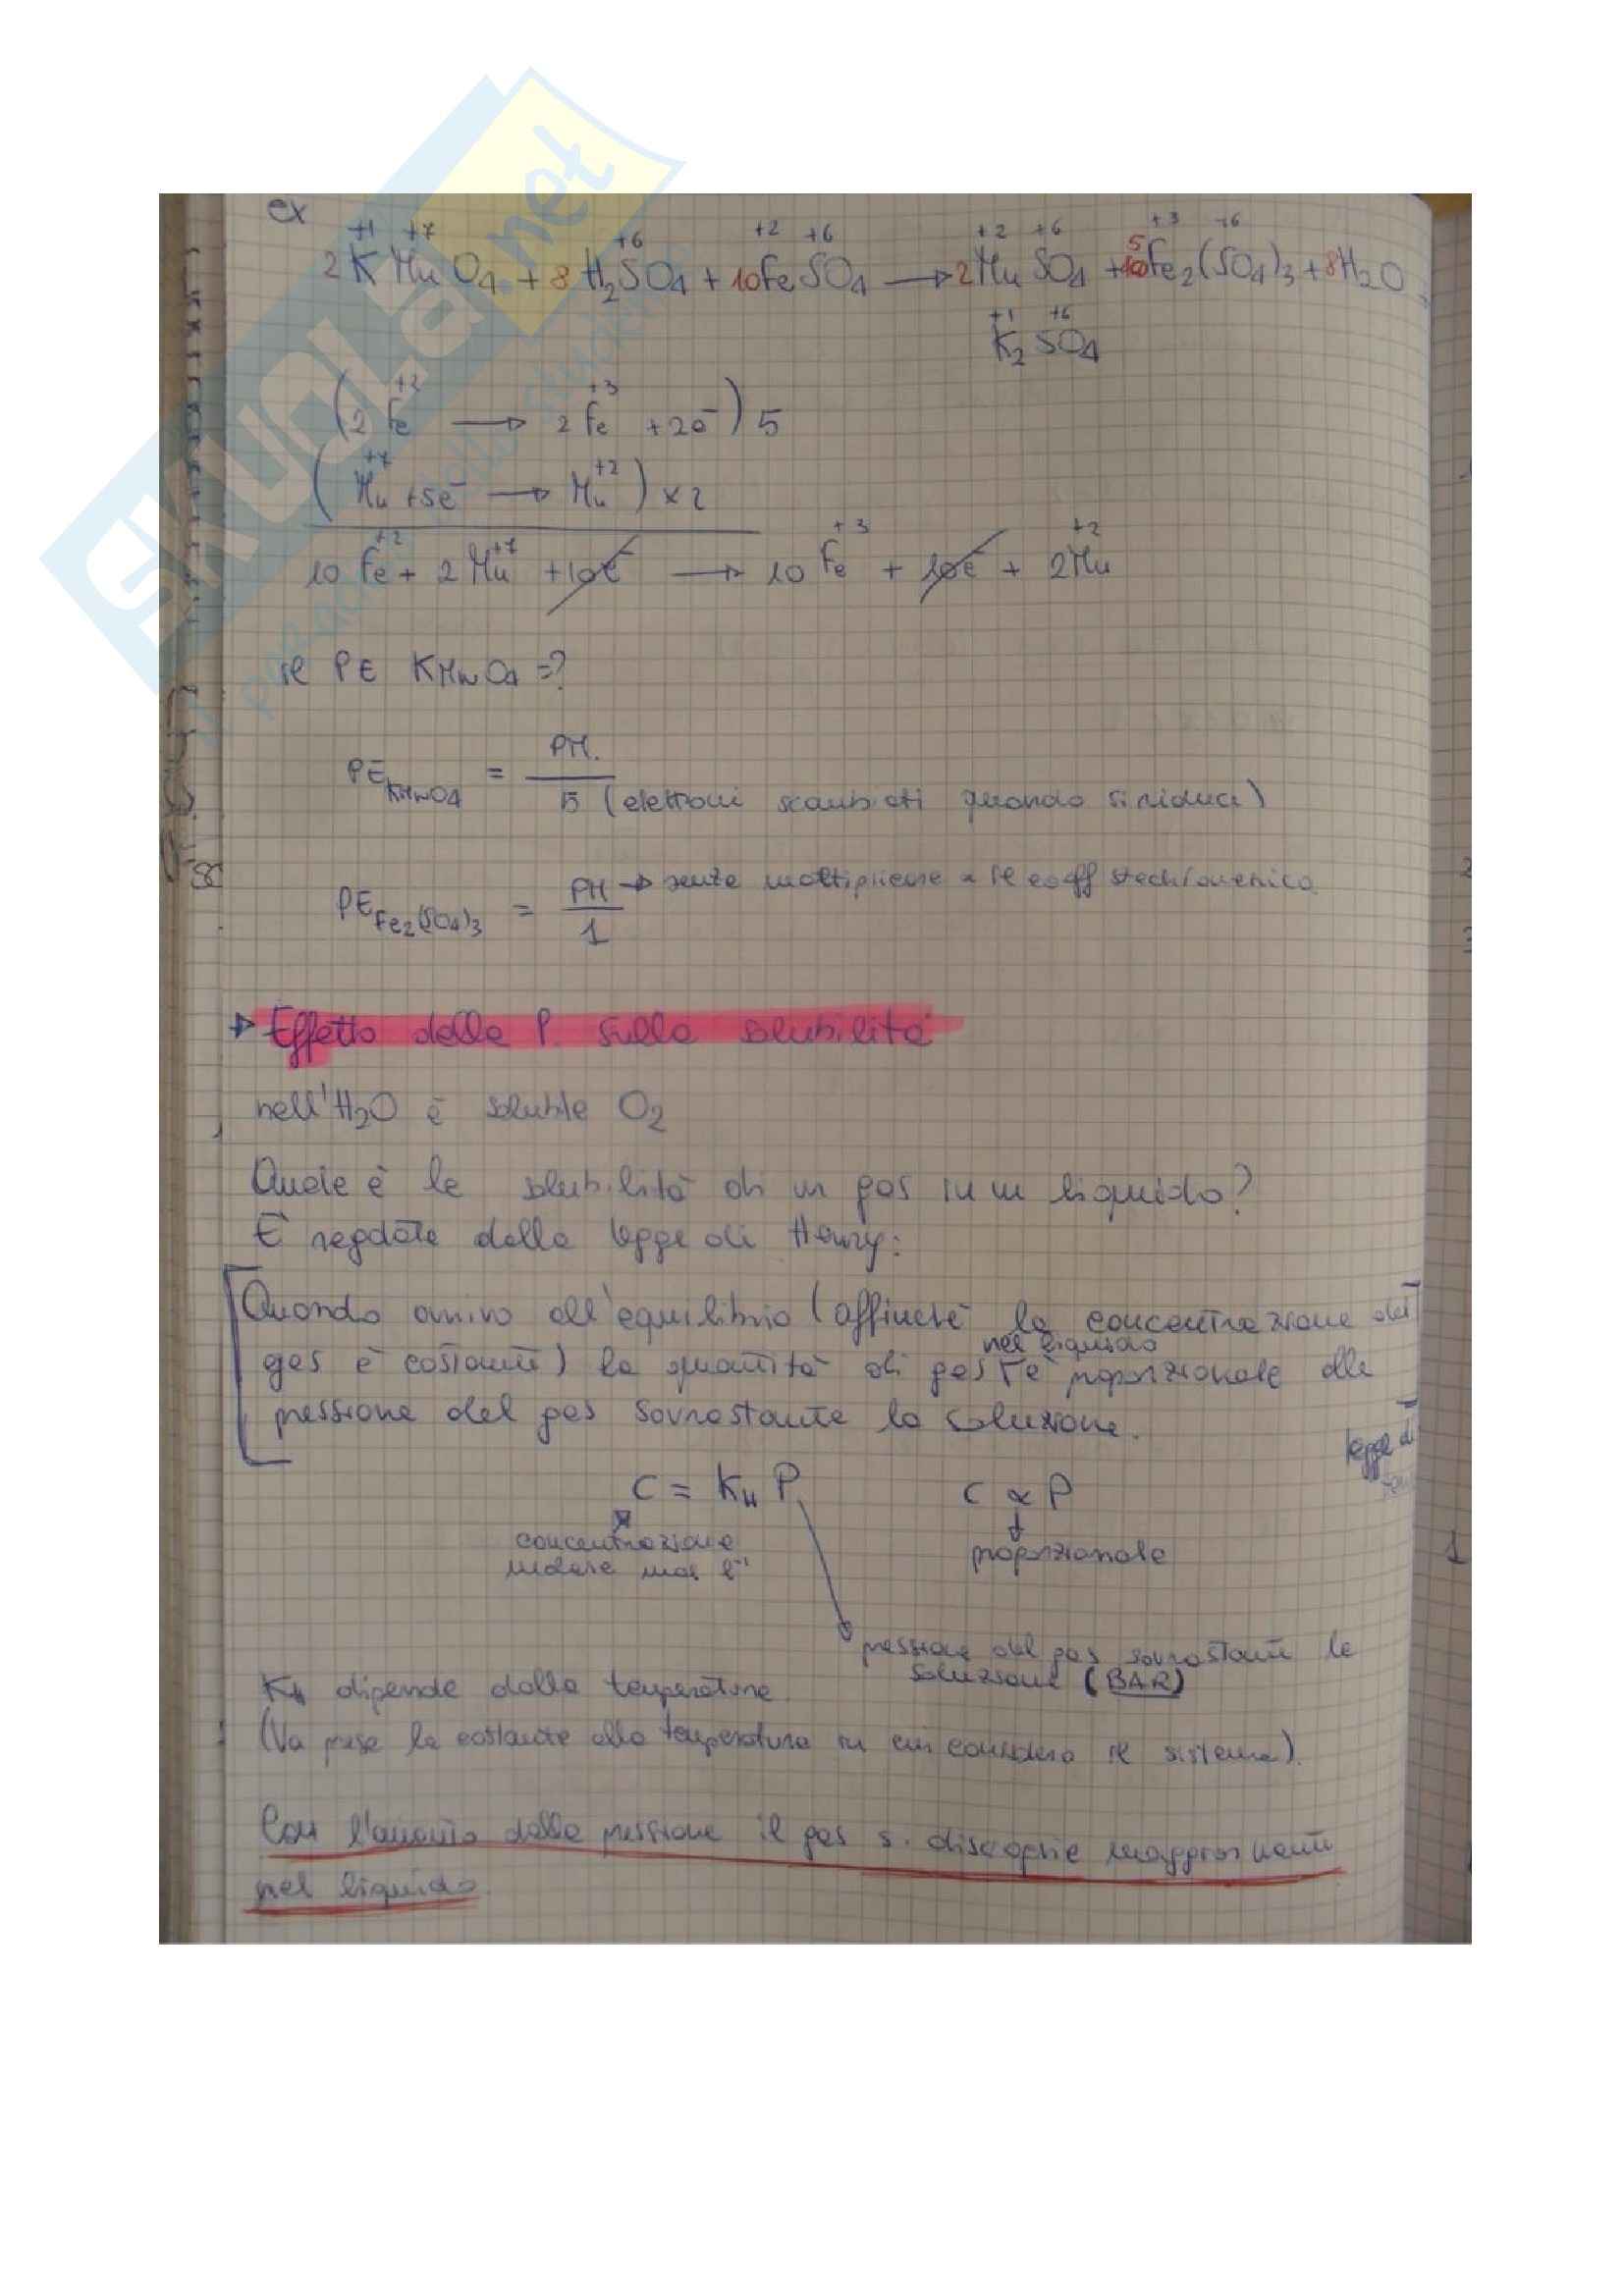 ex
+1 +7 +6 +2 +6 +2 +6 +3 +6
2 K Mn O4 + 8 H2SO4 + 10 Fe SO4 → 2 Mn SO4 + 5 Fe2(SO4)3 + 8 H2O
+1 +6
K2 SO4
(2 Fe+2 → 2 Fe+3 + 2e-) 5
(Mn+7 + 5e- → Mn+2) x 2
10 Fe+2 + 2 Mn+7 + 10e- → 10 Fe+3 + 10e- + 2 Mn+2
il PE KMnO4 = ?
PE KMnO4 = PM. / 5 (elettroni scambiati quando si riduce)
PE Fe2(SO4)3 = PM / 1 → senza moltiplicare x il coeff stechiometrico
Effetto della P. sulla solubilità
nell'H2O è solubile O2
Quale è la solubilità di un gas in un liquido?
È regolata dalla legge di Henry:
Quando arrivo all'equilibrio (affinché la concentrazione del
nel liquido
gas è costante) la quantità di gas è proporzionale alla
pressione del gas sovrastante la soluzione.
legge di
C = KH P C ∝ P
concentrazione proporzionale
molare mol l-1
pressione del gas sovrastante la
soluzione (BAR)
KH dipende dalla temperatura.
(Va presa la costante alla temperatura in cui considero il sistema).
Con l'aumento della pressione il gas si discioglie maggiormente
nel liquido.
skuola.net